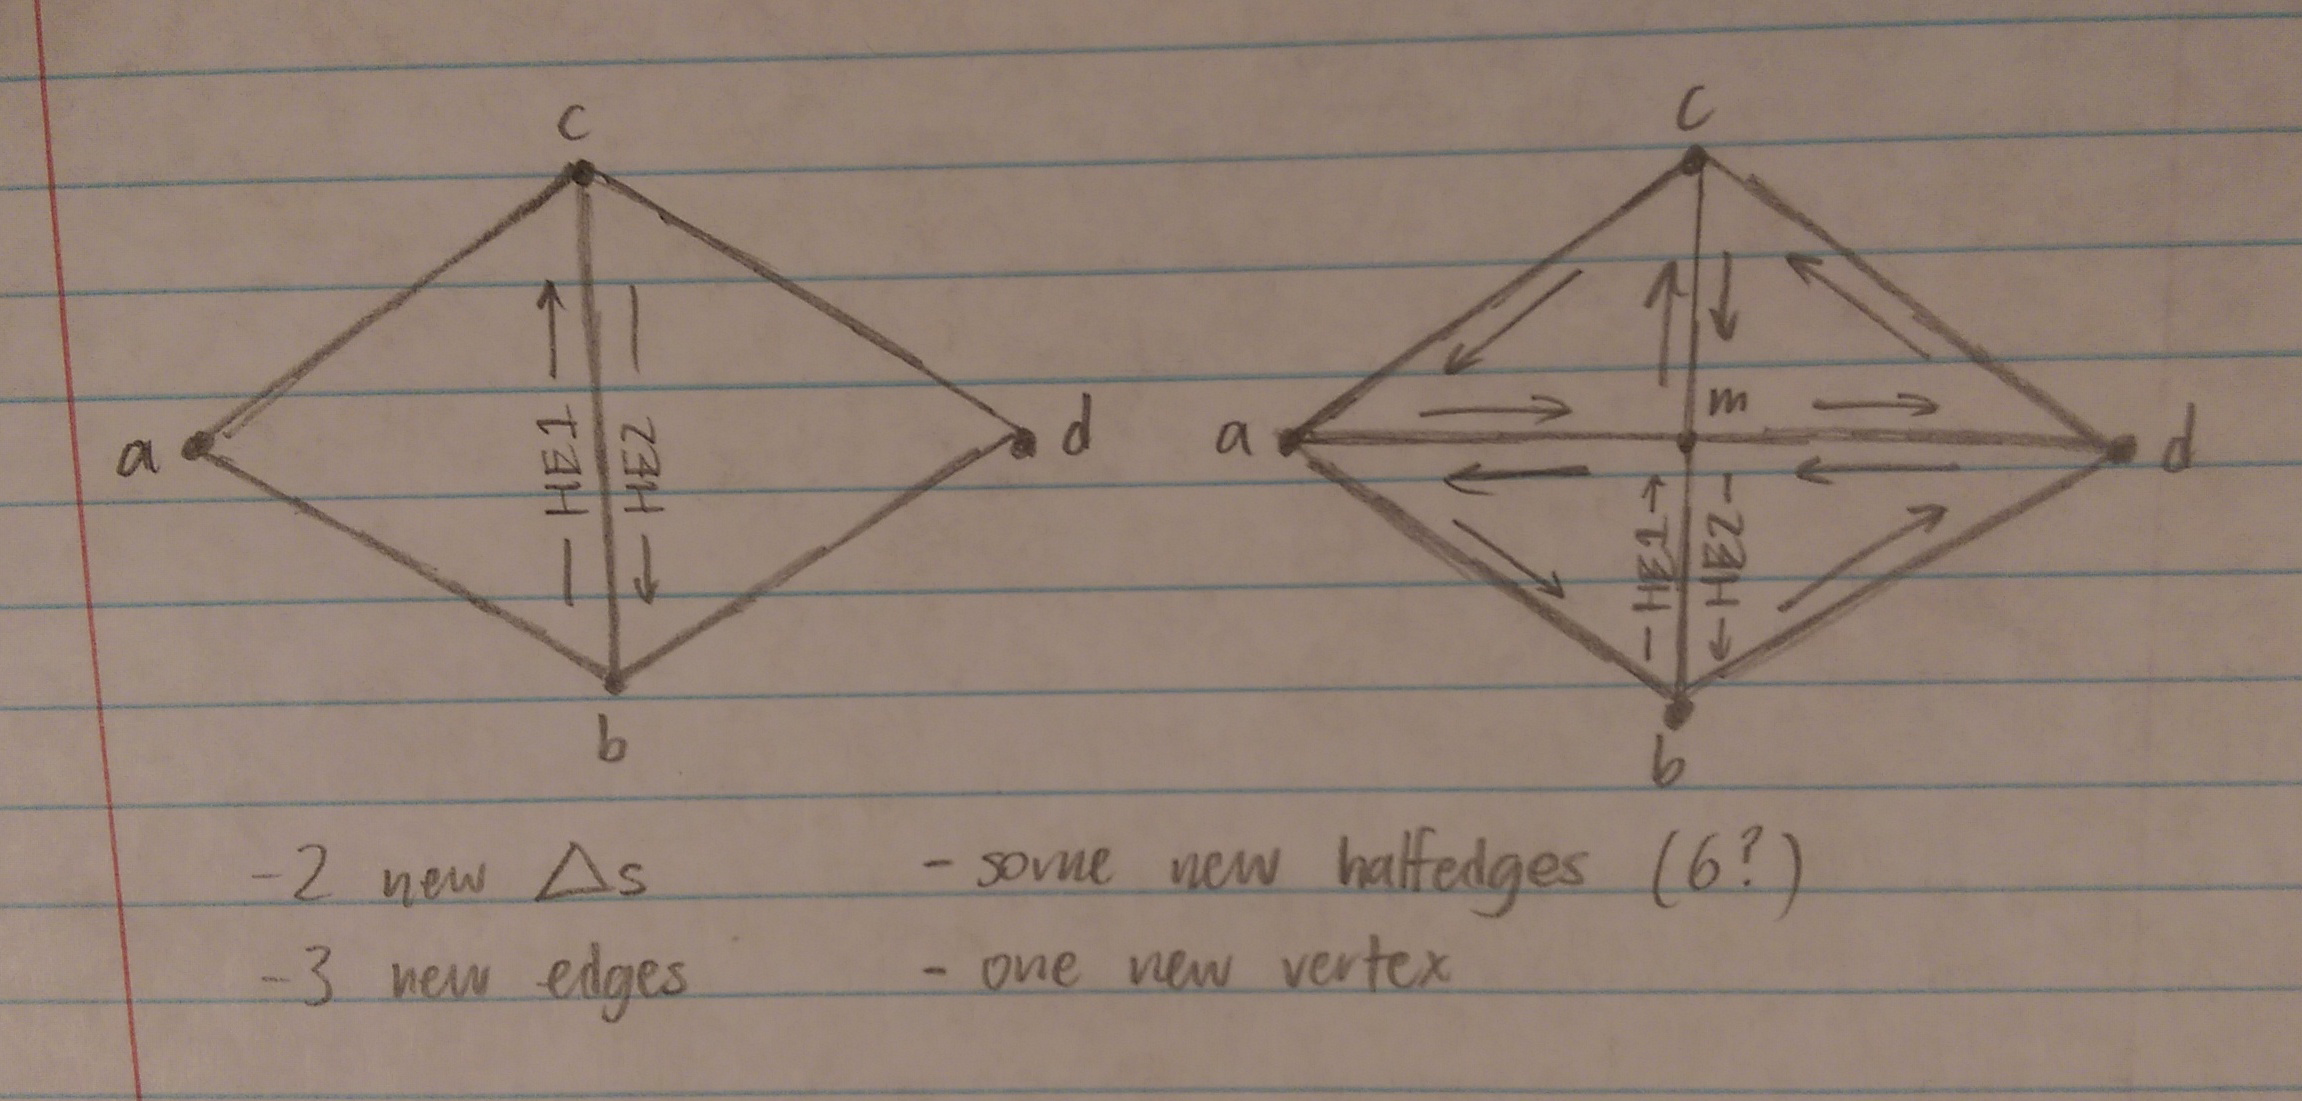 c
a
HE1
HE2
d
b
c
a
m
d
HE1
HE2
b
-2 new △s
-3 new edges
- some new halfedges (6?)
- one new vertex